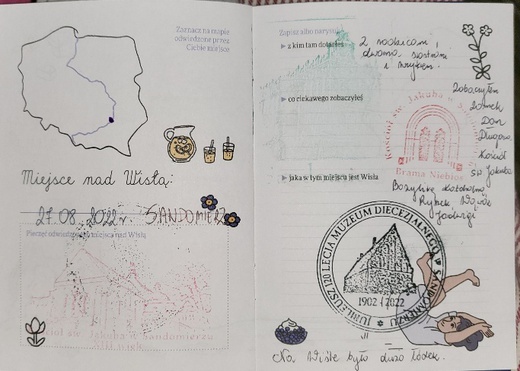 Zaznacz na mapie
odwiedzone przez
Ciebie miejsce
Miejsce nad Wisłą:
27.08.2022 r. SANDOMIERZ
Pieczęć odwiedzonego miejsca nad Wisłą
św. Jakuba w Sandomierzu
Zapisz albo narysuj
z kim tam dotarłeś
2 rodzicami,
dwoma siostrami
i wujkiem.
co ciekawego zobaczyłeś
Zobaczyłem
Zamek
Dom
Długosza,
Kościół
św. Jakuba
Kościół św. Jakuba w
Brama Niebios
jaka w tym miejscu jest Wisła
Bazylikę katedralną,
Rynek
Jadwigi
JUBILEUSZ 120 LECIA MUZEUM DIECEZJALNEGO W SANDOMIERZU
1902 / 2022
Na Wiśle było dużo łódek.